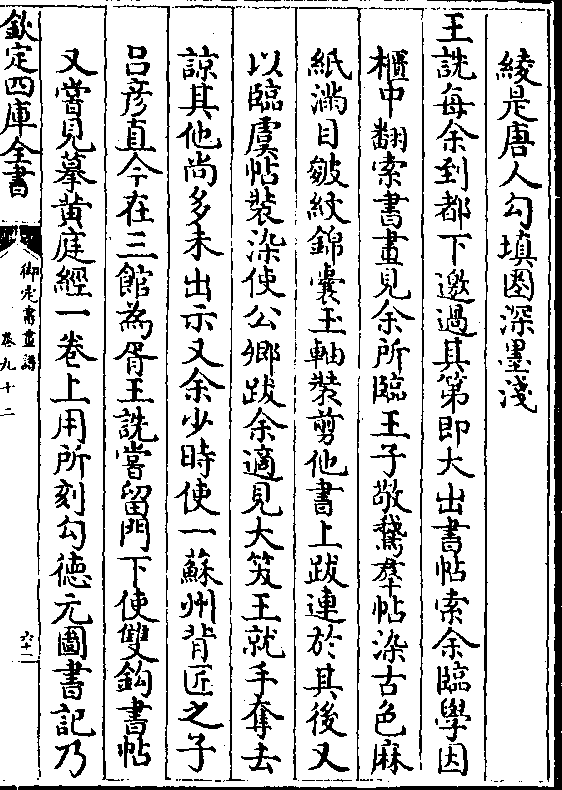 綾是唐人勾填圏深墨淺
王詵每余到都下邀過其第即大出書帖索余臨學因
櫃中翻索書畫見余所臨王子敬鵞羣帖染古色麻
紙滿目皴紋錦囊玉軸裝剪他書上跋連於其後又
以臨虞帖裝染使公卿跋余適見大笑王就手奪去
諒其他尚多未出示又余少時使一蘇州背匠之子
吕彦直今在三館為胥王詵嘗留門下使雙鈎書帖
又嘗見摹黄庭經一卷上用所刻勾徳元圖書記乃
欽定四庫全書
御定書畫譜
卷九十二
六十二